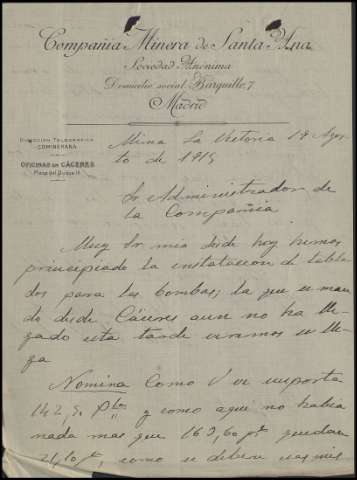 Compañia Minera de Santa Ana
Sociedad Anónima
Domicilio social: Barquillo, 7
Madrid
DIRECCIÓN TELEGRÁFICA
COMINERANA
OFICINAS EN CÁCERES
Plaza del Duque 11
Mina La Victoria 19 Agos
to de 1915
Sr Administrador de
la Compañia
Muy Sr mio desde hoy hemos
principiado la instalacion de tabla
dos para las bombas; la que se man
do desde Cáceres aun no ha lle
gado esta tarde veremos si lle
ga
Nomina Como V ve importa
142,5 Ptas y como aqui no habia
nada mas que 163,60 pts quedan
21,10 pts, como se deberá